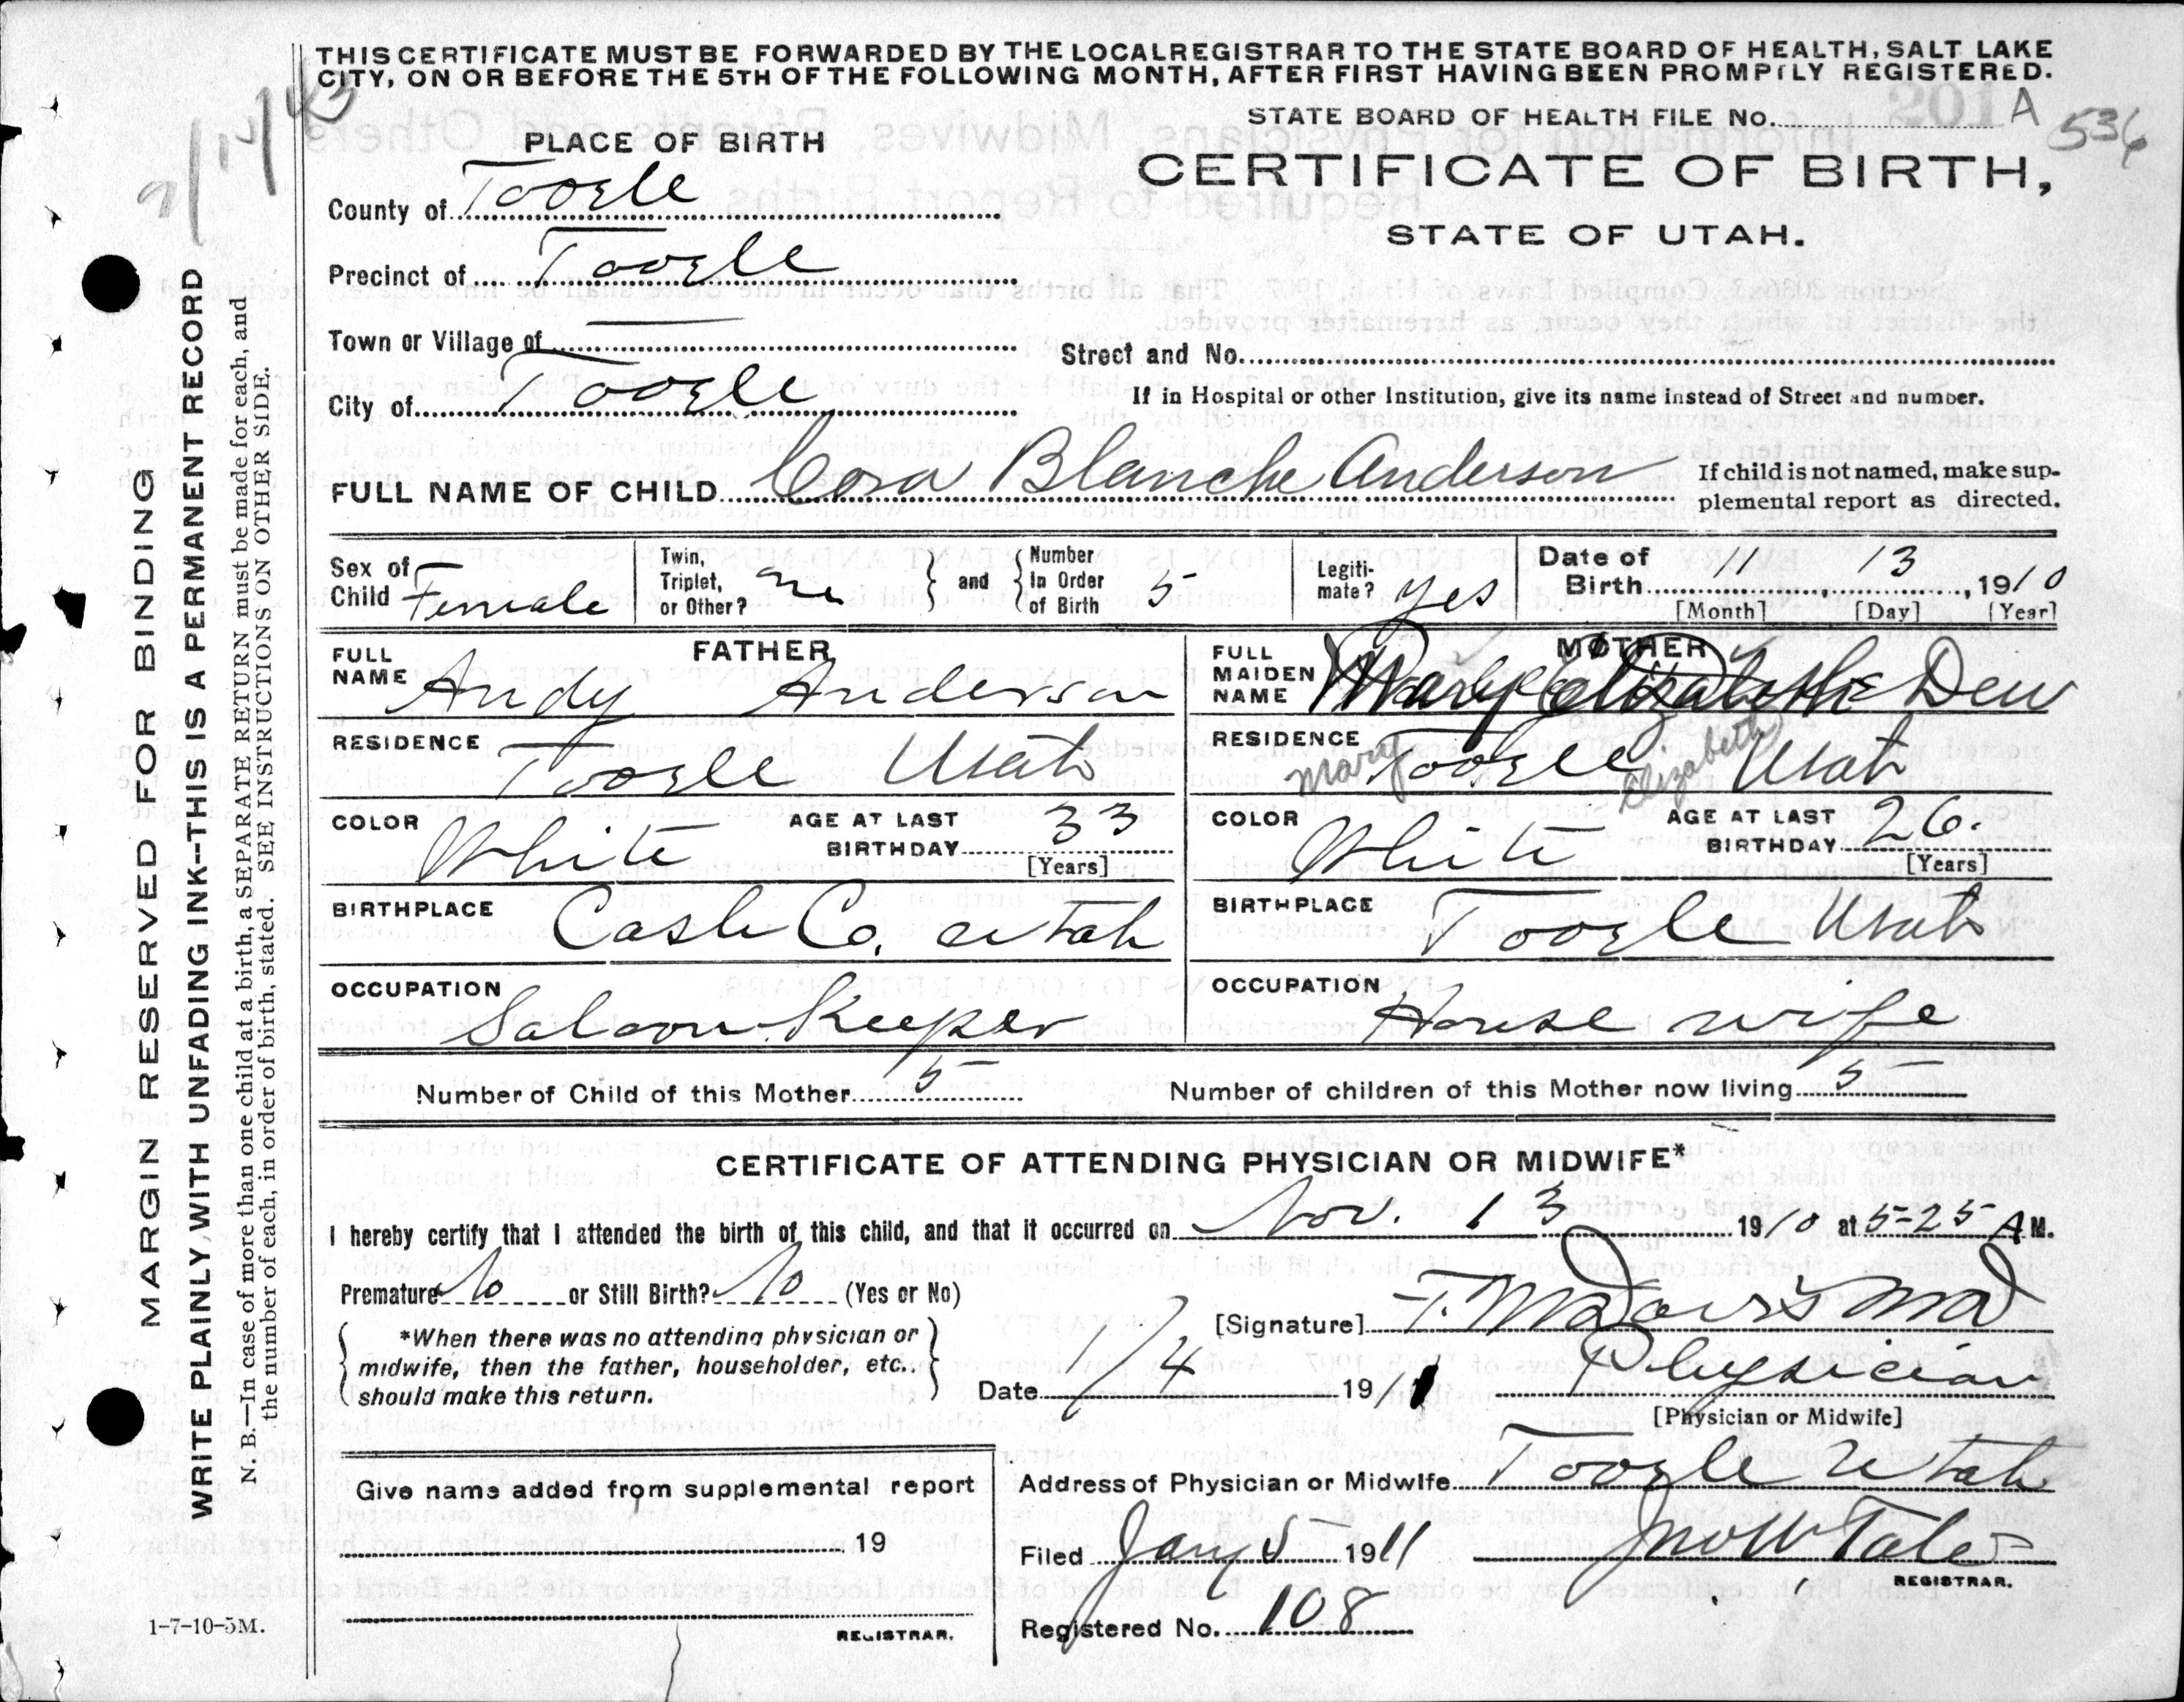 THIS CERTIFICATE MUST BE FORWARDED BY THE LOCAL REGISTRAR TO THE STATE BOARD OF HEALTH, SALT LAKE
CITY, ON OR BEFORE THE 5TH OF THE FOLLOWING MONTH, AFTER FIRST HAVING BEEN PROMPTLY REGISTERED.
STATE BOARD OF HEALTH FILE No. 201 A
536
PLACE OF BIRTH
CERTIFICATE OF BIRTH,
STATE OF UTAH.
County of Tooele
Precinct of Tooele
Town or Village of
Street and No.
City of Tooele
If in Hospital or other Institution, give its name instead of Street and number.
FULL NAME OF CHILD Cora Blanche Anderson
If child is not named, make sup-
plemental report as directed.
Sex of Child Female
Twin, Triplet, or Other?
and
Number In Order of Birth 5
Legiti-mate? Yes
Date of Birth 11 13, 1910
[Month] [Day] [Year]
FATHER
FULL NAME Andy Anderson
RESIDENCE Tooele Utah
COLOR White AGE AT LAST BIRTHDAY 33
[Years]
BIRTHPLACE Cash Co. Utah
OCCUPATION Saloon Keeper
MOTHER
FULL MAIDEN NAME Mary Elizabeth Dew
RESIDENCE Tooele Utah
Mary Elizabeth
COLOR White AGE AT LAST BIRTHDAY 26.
[Years]
BIRTHPLACE Tooele Utah
OCCUPATION House wife
Number of Child of this Mother 5
Number of children of this Mother now living 5
CERTIFICATE OF ATTENDING PHYSICIAN OR MIDWIFE*
I hereby certify that I attended the birth of this child, and that it occurred on Nov. 13 1910 at 5-25 A M.
Premature No or Still Birth? No (Yes or No)
[Signature] T. M Davis MD
*When there was no attending physician or
midwife, then the father, householder, etc.,
should make this return.
Date 1/4 1911
Physician
[Physician or Midwife]
Give name added from supplemental report
19
REGISTRAR.
Address of Physician or Midwife Tooele Utah
Filed Jany 5 1911 Jno W Tate
REGISTRAR.
Registered No. 108
1-7-10-5M.
MARGIN RESERVED FOR BINDING
WRITE PLAINLY, WITH UNFADING INK--THIS IS A PERMANENT RECORD
N. B.—In case of more than one child at a birth, a SEPARATE RETURN must be made for each, and
the number of each, in order of birth, stated. SEE INSTRUCTIONS ON OTHER SIDE.